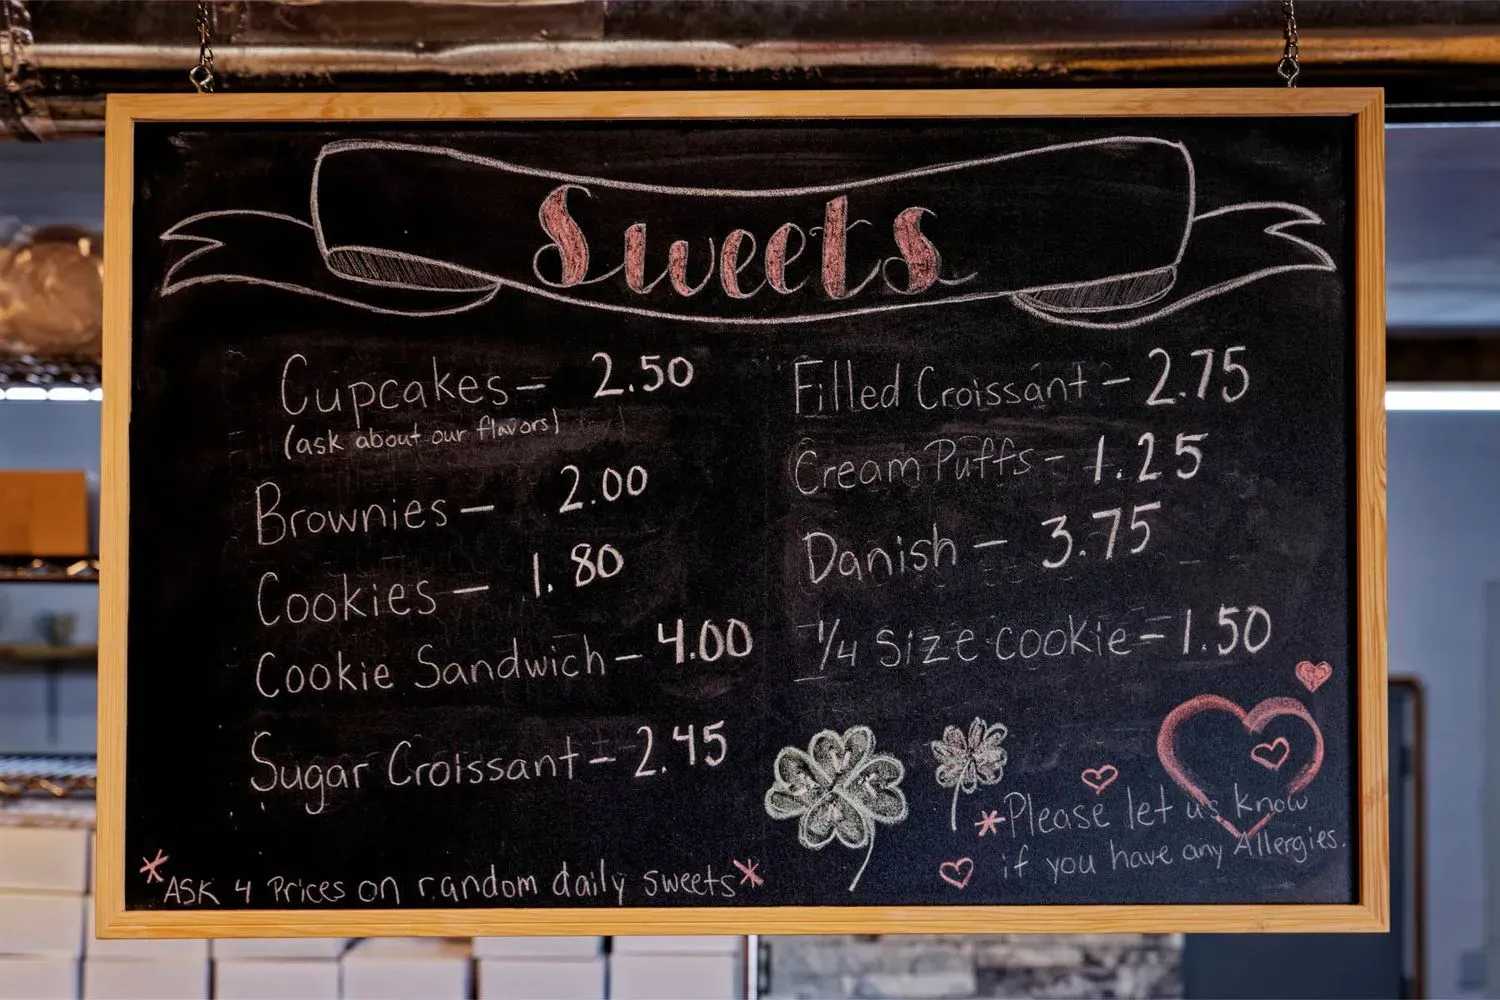 Sweets
Cupcakes - 2.50
(ask about our flavors)
Brownies - 2.00
Cookies - 1.80
Cookie Sandwich - 4.00
Sugar Croissant - 2.45
*ASK 4 Prices on random daily sweets*
Filled Croissant - 2.75
Cream Puffs - 1.25
Danish - 3.75
1/4 Size cookie - 1.50
*Please let us know
if you have any Allergies.